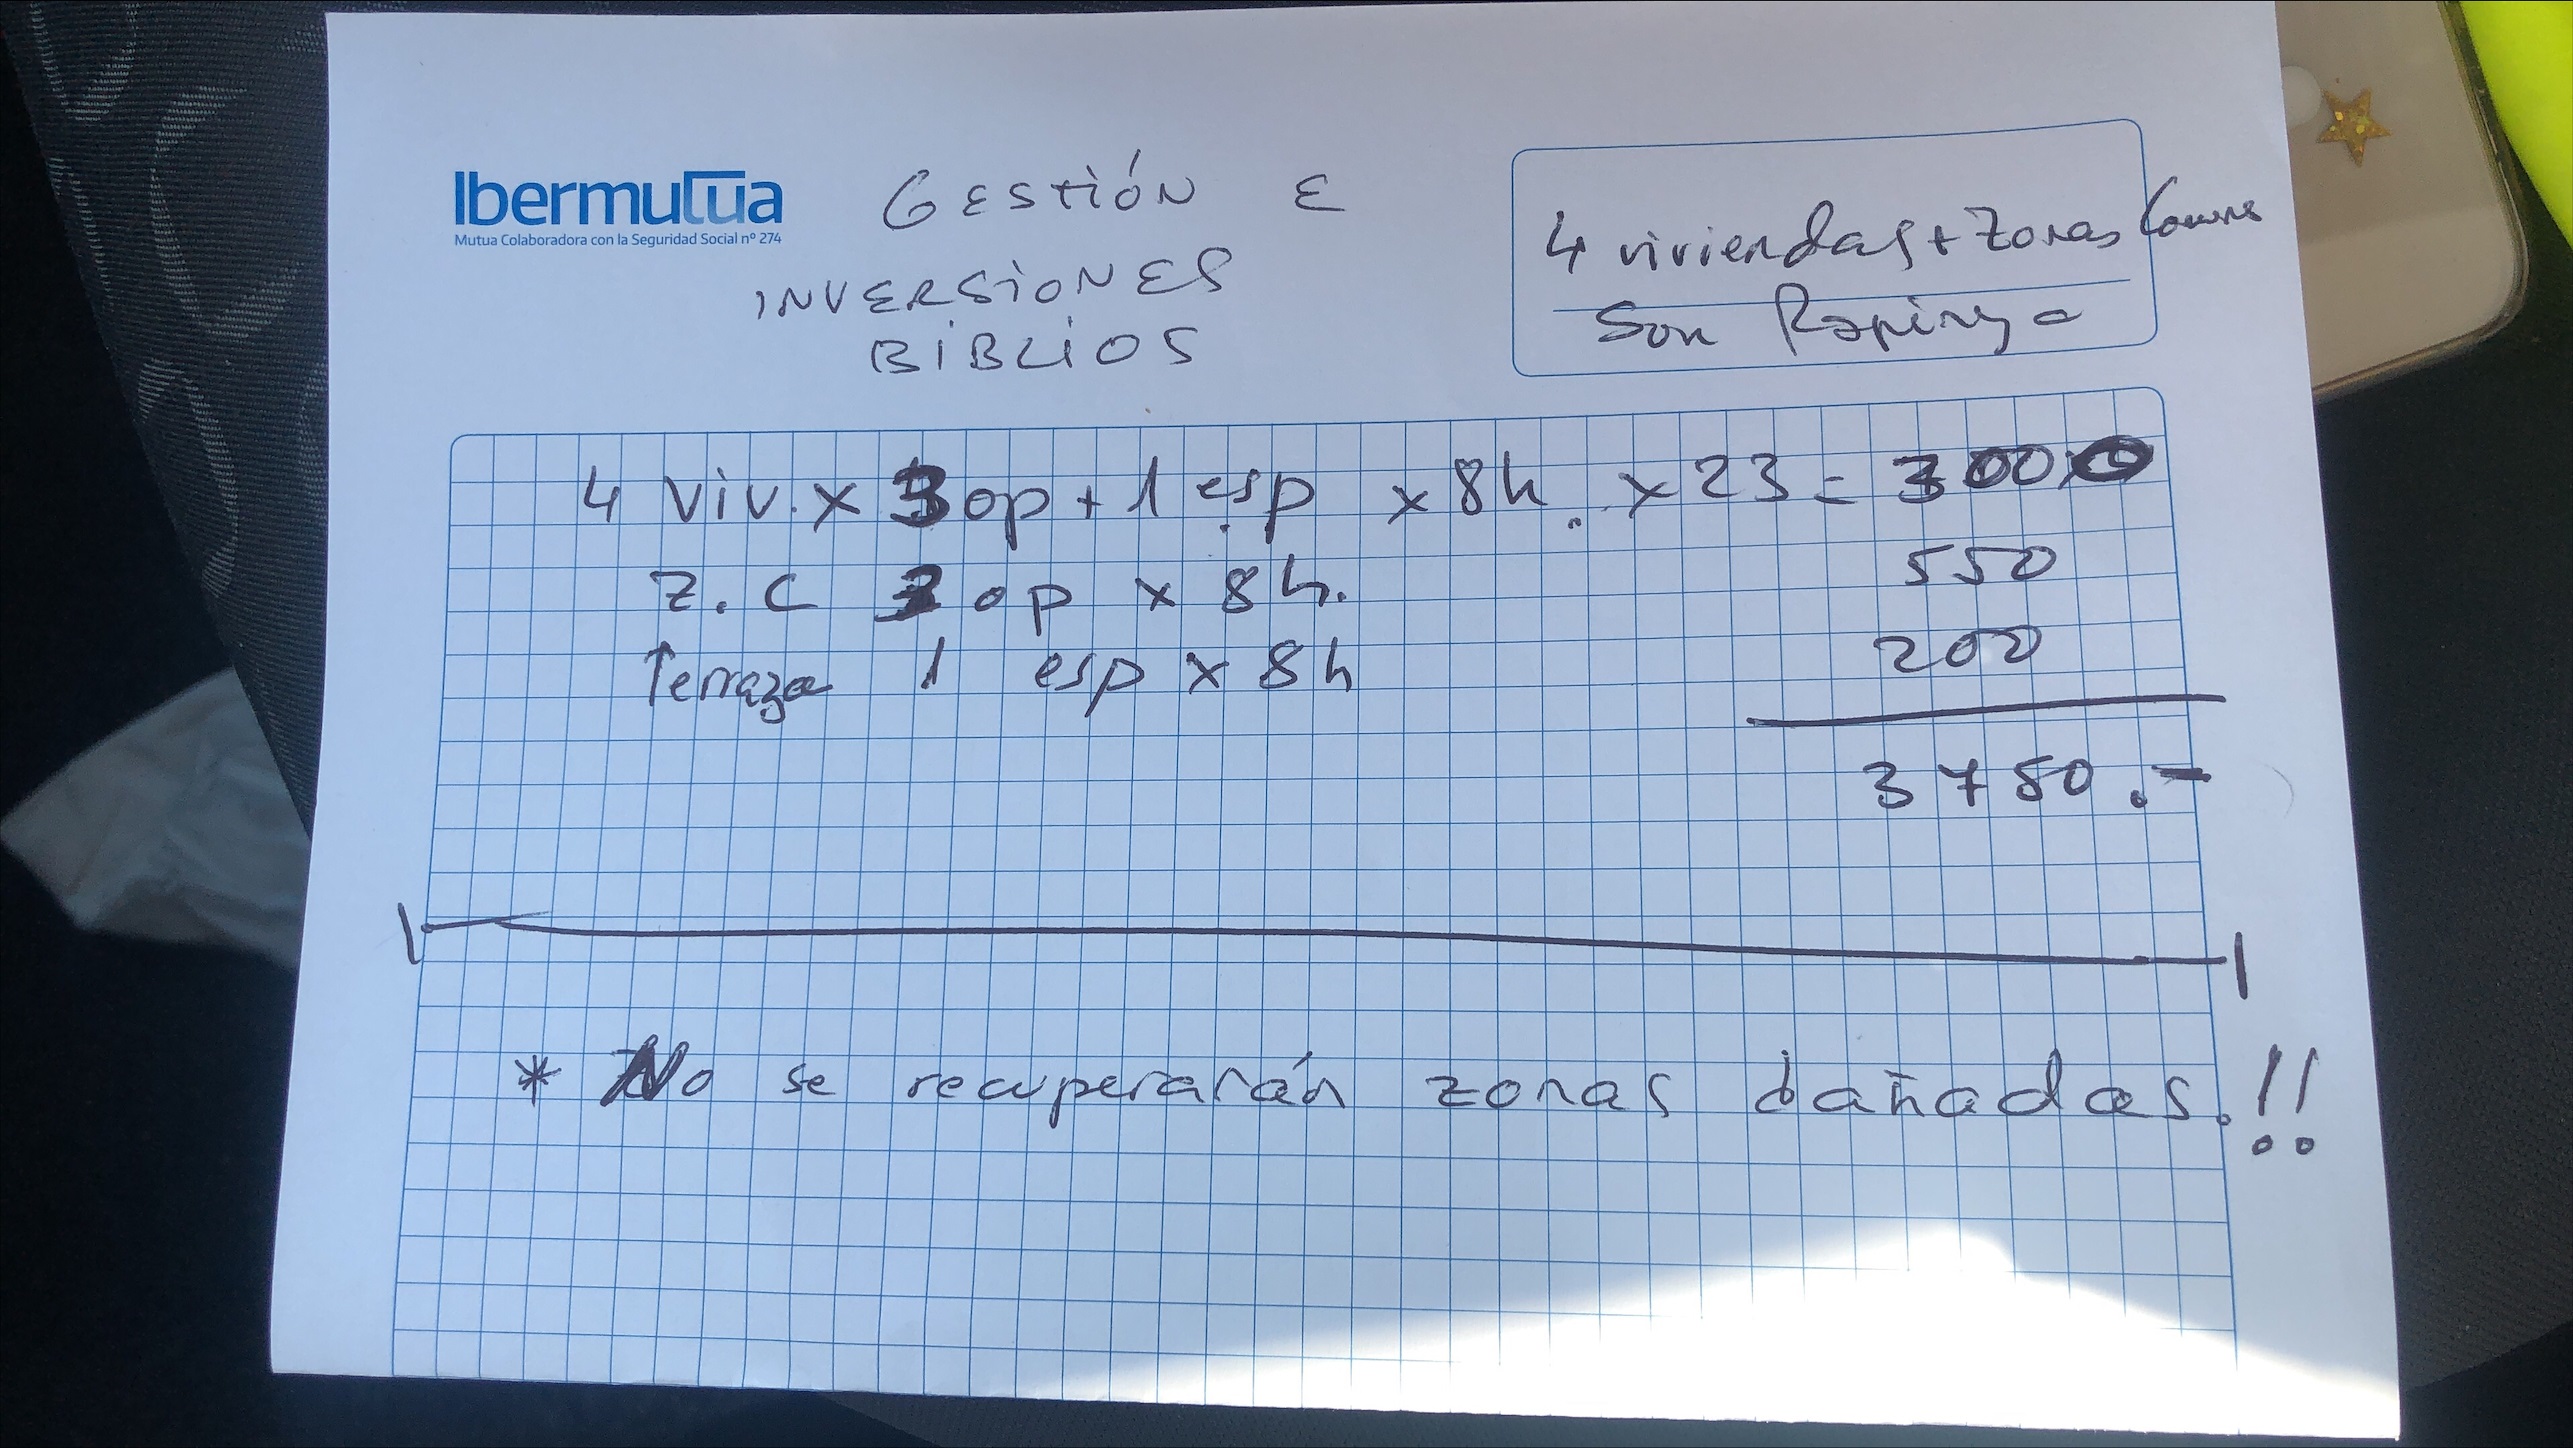 Ibermutua
Mutua Colaboradora con la Seguridad Social nº 274
GESTIÓN E
INVERSIONES
BIBLIOS
4 viviendas + Zonas
Son Rapinya
4 viv. x 3 op + 1 esp x 8h. x 23 = 3000
Z. C 3 op x 8h. 550
Terraza 1 esp x 8h 200
3750.-
* No se recuperarán zonas dañadas.!!